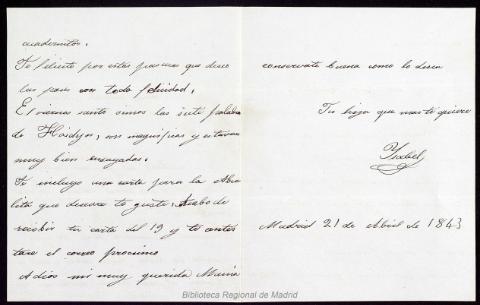 cuadernitos.
Te felicito por estas pascuas que deseo
las pases con toda felicidad.
El viernes santo oimos las siete palabras
de Haidyn, son magnificas y estaban
muy bien ensayadas.
Te incluyo una carta para la Abue
lita que deseare te guste. Acabo de
recibir tu carta del 19 y te contes
tare el correo proximo
Adios mi muy querida Mamá
conservate buena como lo desea
Tu hija que mas te quiere
Ysabel
Madrid 21 de Abril de 1843
Biblioteca Regional de Madrid